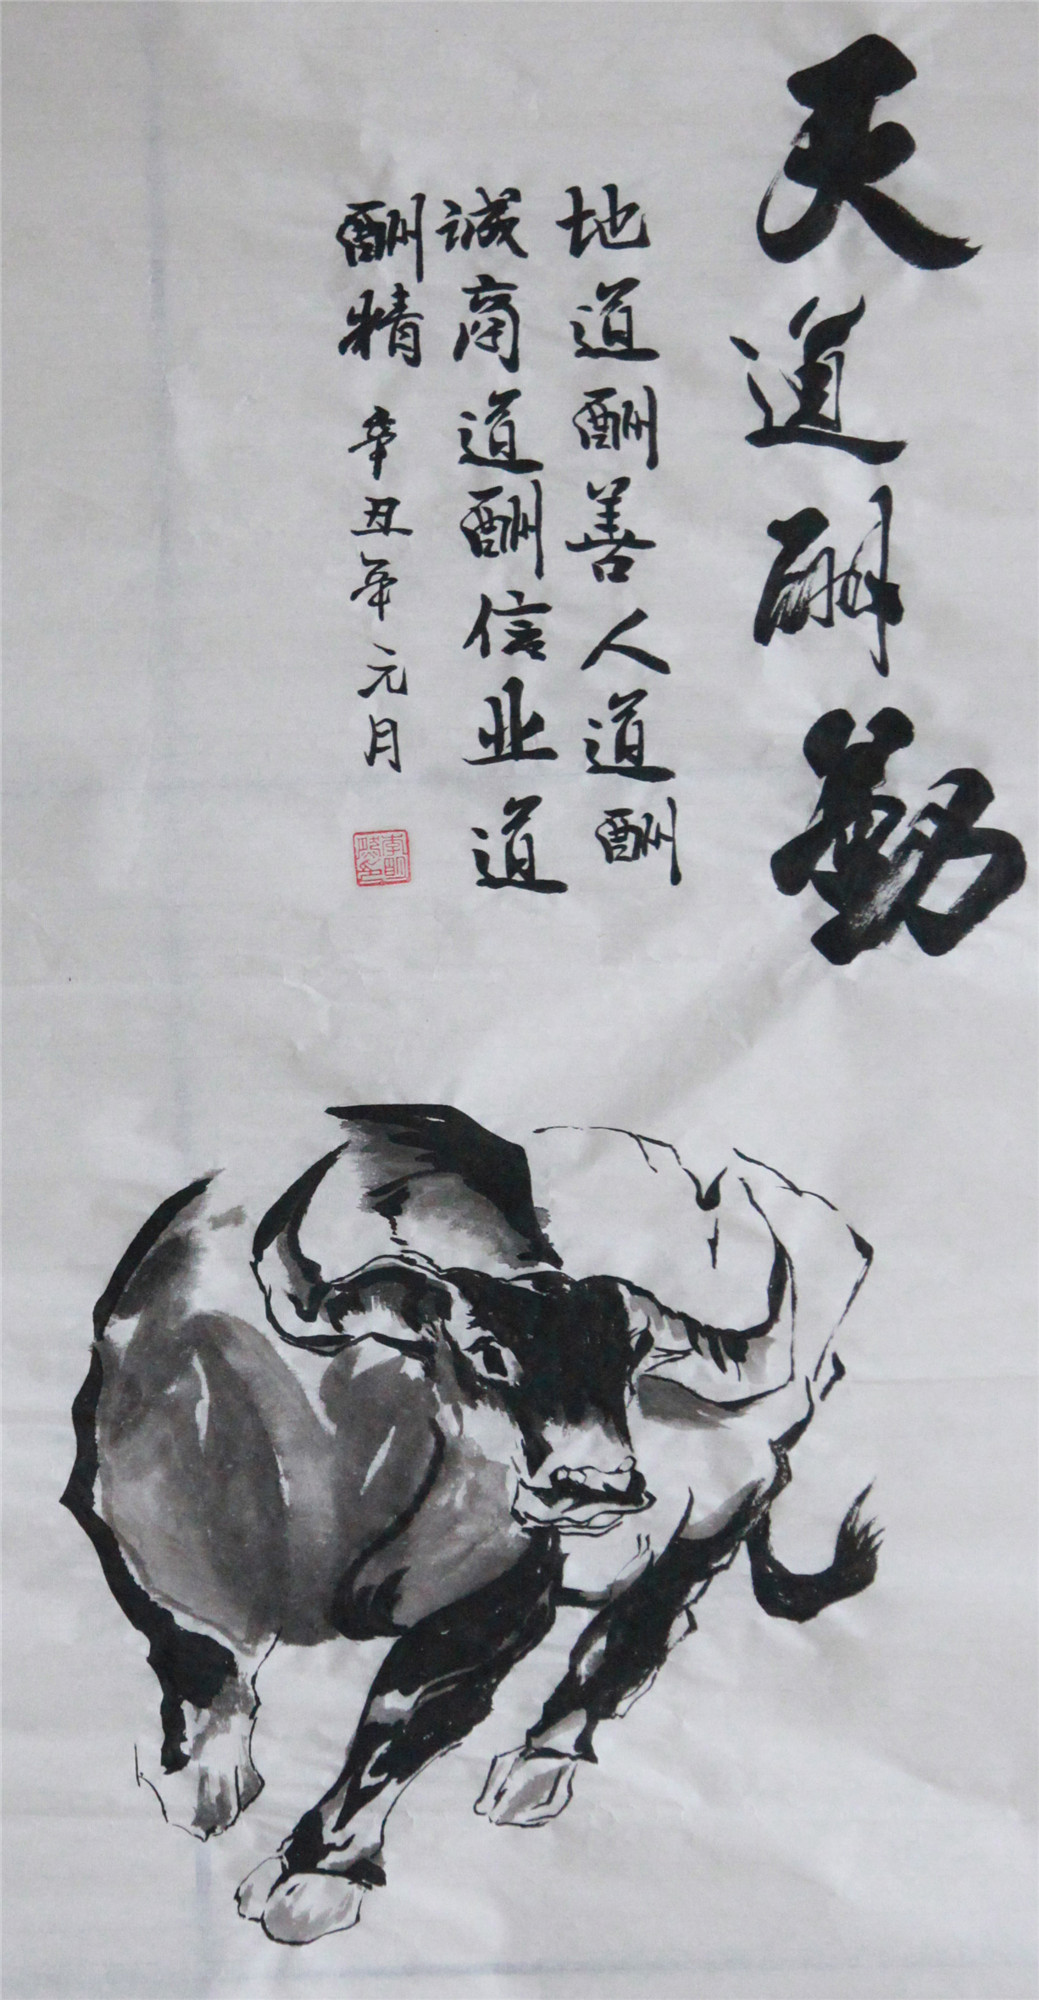 天道酬勤
地道酬善人道酬
誠商道酬信业道
酬精 辛丑年元月